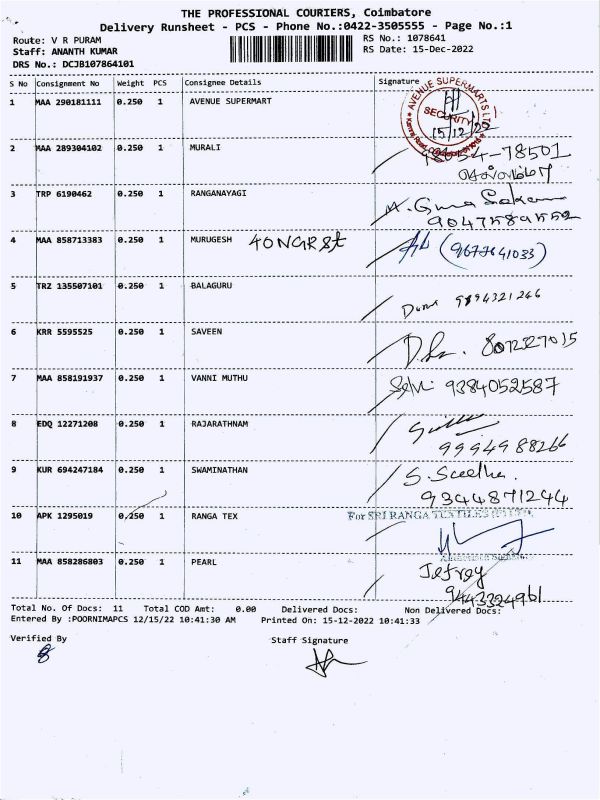 THE PROFESSIONAL COURIERS, Coimbatore
Delivery Runsheet - PCS - Phone No.:0422-3505555 - Page No.:1
Route: V R PURAM RS No.: 1078641
Staff: ANANTH KUMAR RS Date: 15-Dec-2022
DRS No.: DCJB107864101
S No Consignment No Weight PCS Consignee Details Signature
1 MAA 290181111 0.250 1 AVENUE SUPERMART
AVENUE SUPERMARTS LTD
SECURITY
15/12/22
2 MAA 289304102 0.250 1 MURALI
3 TRP 6190462 0.250 1 RANGANAYAGI
9047589552
4 MAA 858713383 0.250 1 MURUGESH
5 TRZ 135507101 0.250 1 BALAGURU
9894321246
6 KRR 5595525 0.250 1 SAVEEN
7 MAA 858191937 0.250 1 VANNI MUTHU
Selvi 9384052587
8 EDQ 12271208 0.250 1 RAJARATHNAM
9994988266
9 KUR 694247184 0.250 1 SWAMINATHAN
S. Sueetha.
9344871244
10 APK 1295019 0.250 1 RANGA TEX
For SRI RANGA TEXTILES
11 MAA 858286803 0.250 1 PEARL
Jefrey
9443324961
Total No. Of Docs: 11 Total COD Amt: 0.00 Delivered Docs: Non Delivered Docs:
Entered By :POORNIMAPCS 12/15/22 10:41:30 AM Printed On: 15-12-2022 10:41:33
Verified By Staff Signature